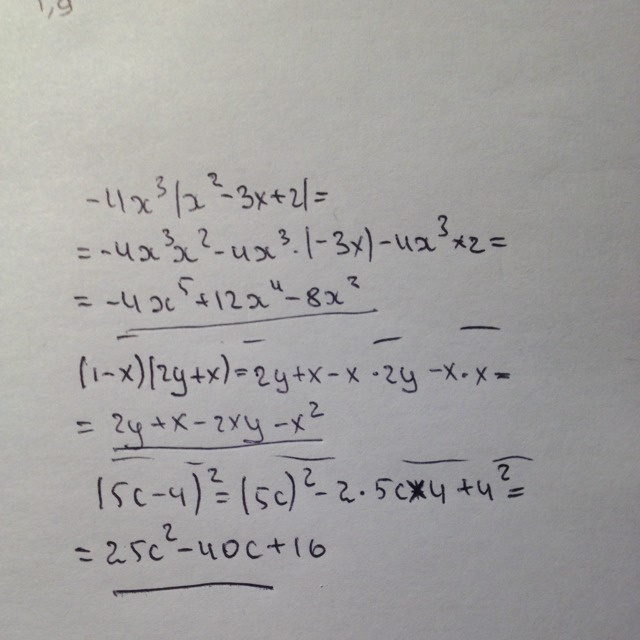 1,9
-4x³(x²-3x+2)=
=-4x³x²-4x³·(-3x)-4x³×2=
=-4x⁵+12x⁴-8x³
(1-x)(2y+x)=2y+x-x·2y-x·x=
=2y+x-2xy-x²
(5c-4)²=(5c)²-2·5c×4+4²=
=25c²-40c+16